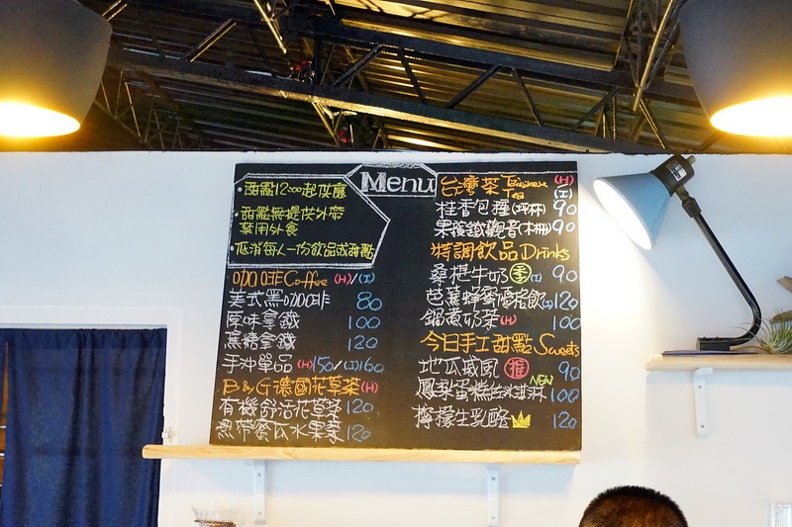 Menu
甜點12:00起供應
甜點無提供外帶
禁用外食
低消每人一份飲品或甜點
咖啡Coffee (H)/(I)
美式黑咖啡 80
原味拿鐵 100
蕉糖拿鐵 120
手沖單品 (H)150/(I)160
B&G德國花草茶(H)
有機舒活花草茶 120
熱帶蜜瓜水果茶 120
台灣茶 Taiwanese Tea (H) (I)
桂香包種(坪林) 90
果蜜鐵觀音(木柵) 90
特調飲品Drinks
桑椹牛奶 季 (I) 90
芭蕉蜂蜜優格飲(I) 120
鍋煮奶茶(H) 100
今日手工甜點 Sweets
地瓜戚風 推 90
鳳梨蛋糕佐冰淇淋 NEW 100
檸檬生乳酪 120